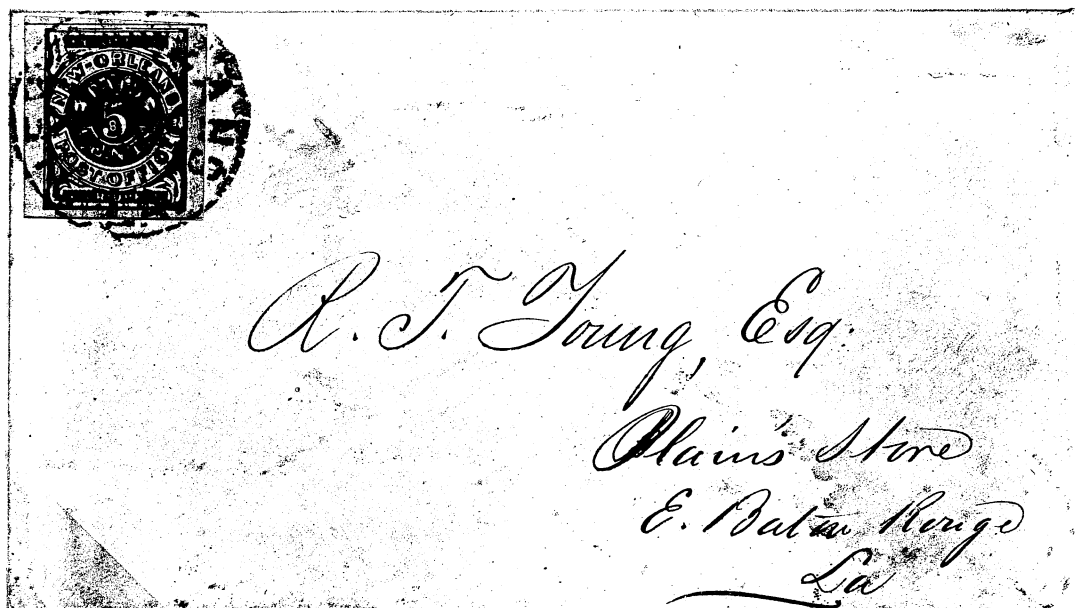 NEW-ORLEANS
PAID
5
CENTS
POST-OFFICE
R. T. Young, Esq:
Plain's Store
E. Baton Rouge
La